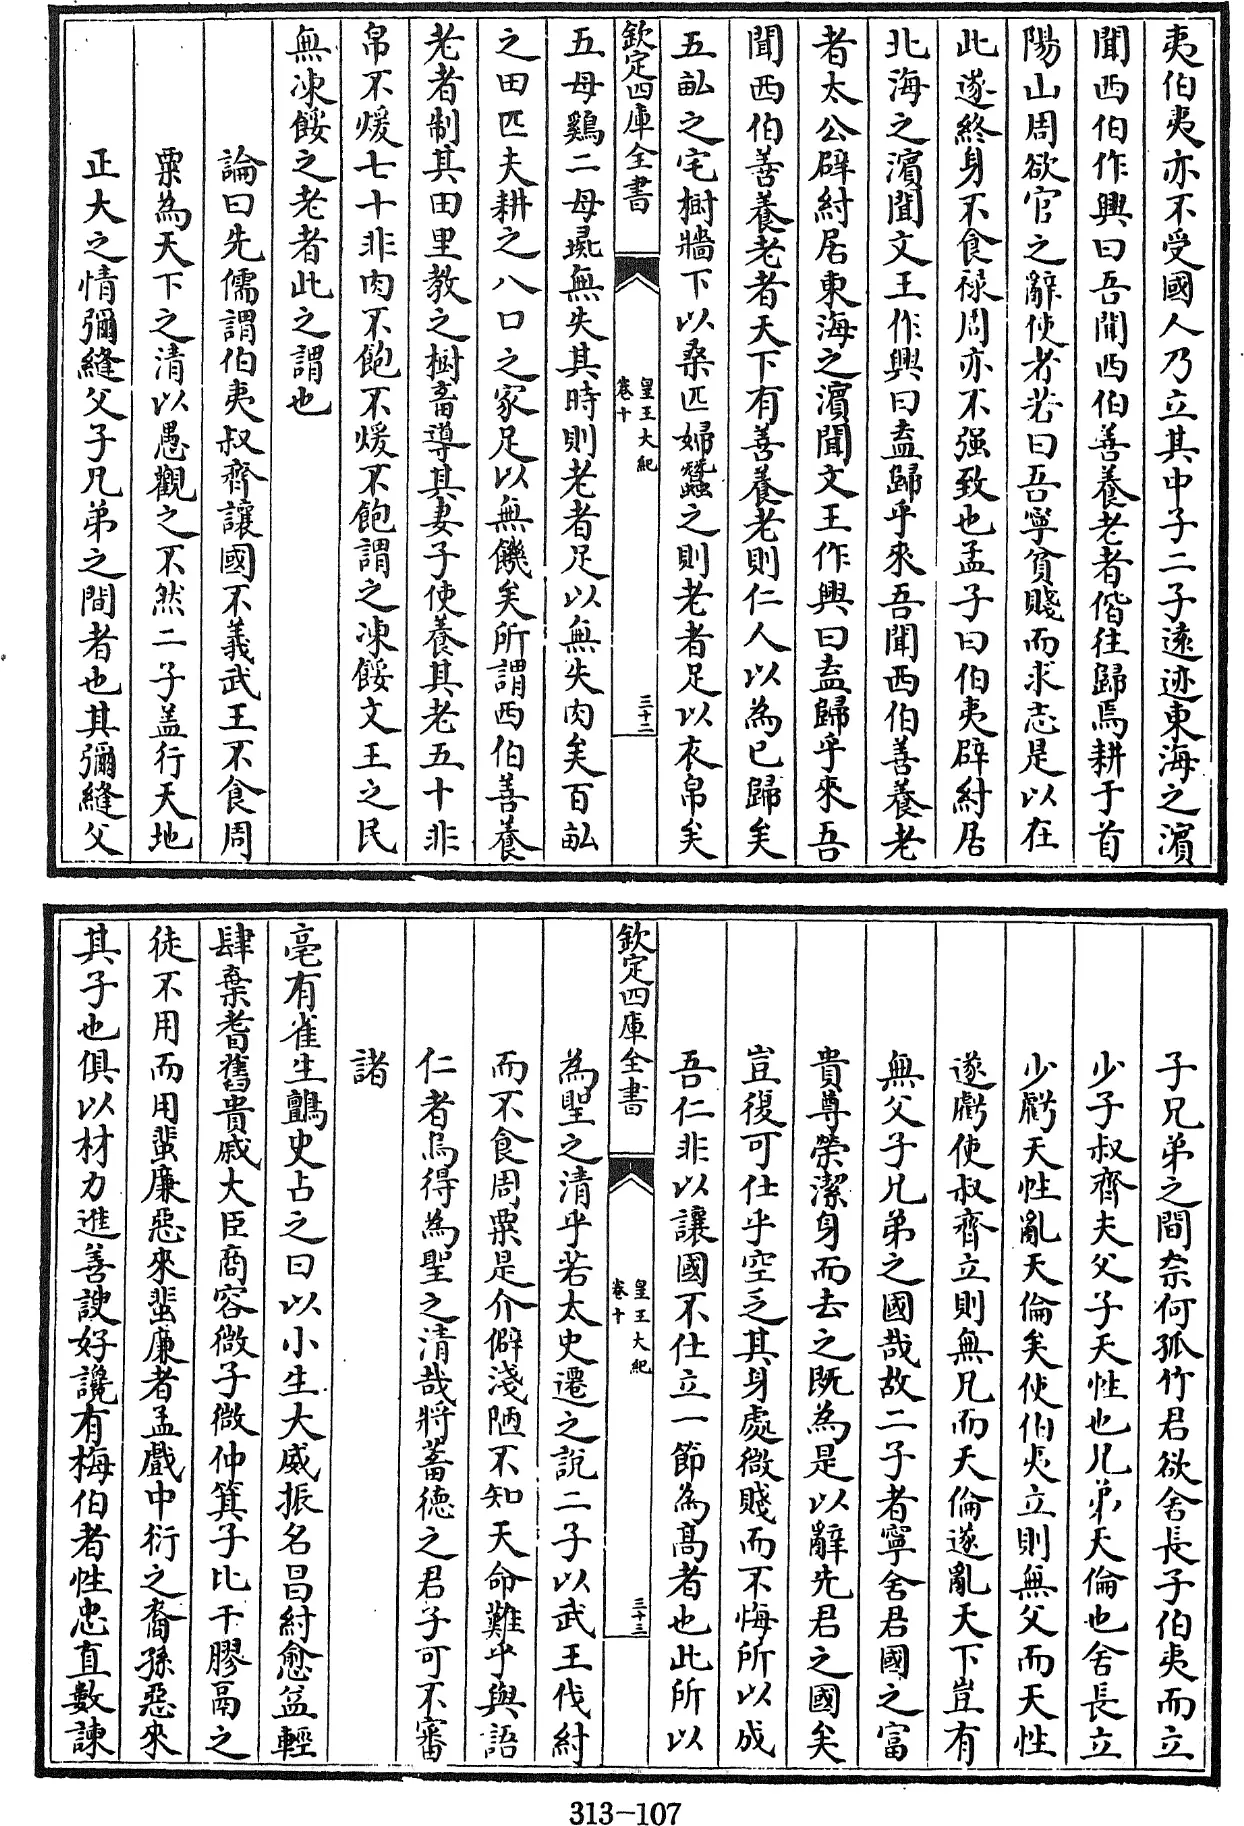 夷伯夷亦不受國人乃立其中子二子遠迹東海之濵
聞西伯作興曰吾聞西伯善養老者偕往歸焉耕于首
陽山周欲官之辭使者若曰吾寧貧賤而求志是以在
此遂終身不食禄周亦不强致也孟子曰伯夷辟紂居
北海之濵聞文王作興曰盍歸乎來吾聞西伯善養老
者太公辟紂居東海之濵聞文王作興曰盍歸乎來吾
聞西伯善養老者天下有善養老則仁人以為已歸矣
五畆之宅樹牆下以桑匹婦蠶之則老者足以衣帛矣
欽定四庫全書
皇王大紀
卷十
三十二
五母鷄二母彘無失其時則老者足以無失肉矣百畆
之田匹夫耕之八口之家足以無饑矣所謂西伯善養
老者制其田里教之樹畜導其妻子使養其老五十非
帛不煖七十非肉不飽不煖不飽謂之凍餒文王之民
無凍餒之老者此之謂也
論曰先儒謂伯夷叔齊讓國不義武王不食周
粟為天下之清以愚觀之不然二子盖行天地
正大之情彌縫父子兄弟之間者也其彌縫父
子兄弟之間奈何孤竹君欲舍長子伯夷而立
少子叔齊夫父子天性也兄弟天倫也舍長立
少虧天性亂天倫矣使伯夷立則無父而天性
遂虧使叔齊立則無兄而天倫遂亂天下豈有
無父子兄弟之國哉故二子者寧舍君國之富
貴尊榮潔身而去之既為是以辭先君之國矣
豈復可仕乎空乏其身處微賤而不悔所以成
吾仁非以讓國不仕立一節為髙者也此所以
欽定四庫全書
皇王大紀
卷十
三十三
為聖之清乎若太史遷之説二子以武王伐紂
而不食周粟是介僻淺陋不知天命難乎與語
仁者烏得為聖之清哉將蓄徳之君子可不審
諸
亳有雀生鸇史占之曰以小生大威振名昌紂愈益輕
肆棄耆舊貴戚大臣商容微子微仲箕子比干膠鬲之
徒不用而用蜚廉惡來蜚廉者孟戲中衍之裔孫惡來
其子也俱以材力進善諛好讒有梅伯者性忠直數諫
313-107